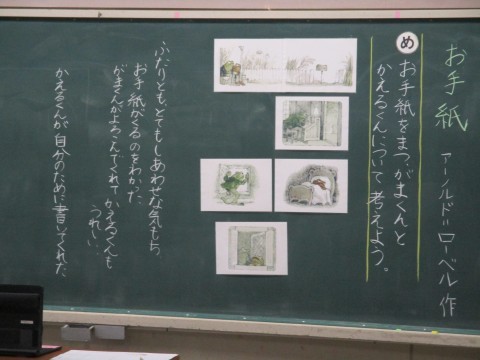 お手紙 アーノルド=ローベル 作
め お手紙をまつがまくんと
かえるくんについて考えよう。
ふたりとも、とてもしあわせな気もち。
お手紙がくるのをわかった。
がまくんがよろこんでくれて かえるくんも
うれしい。
かえるくんが 自分のために書いてくれた。